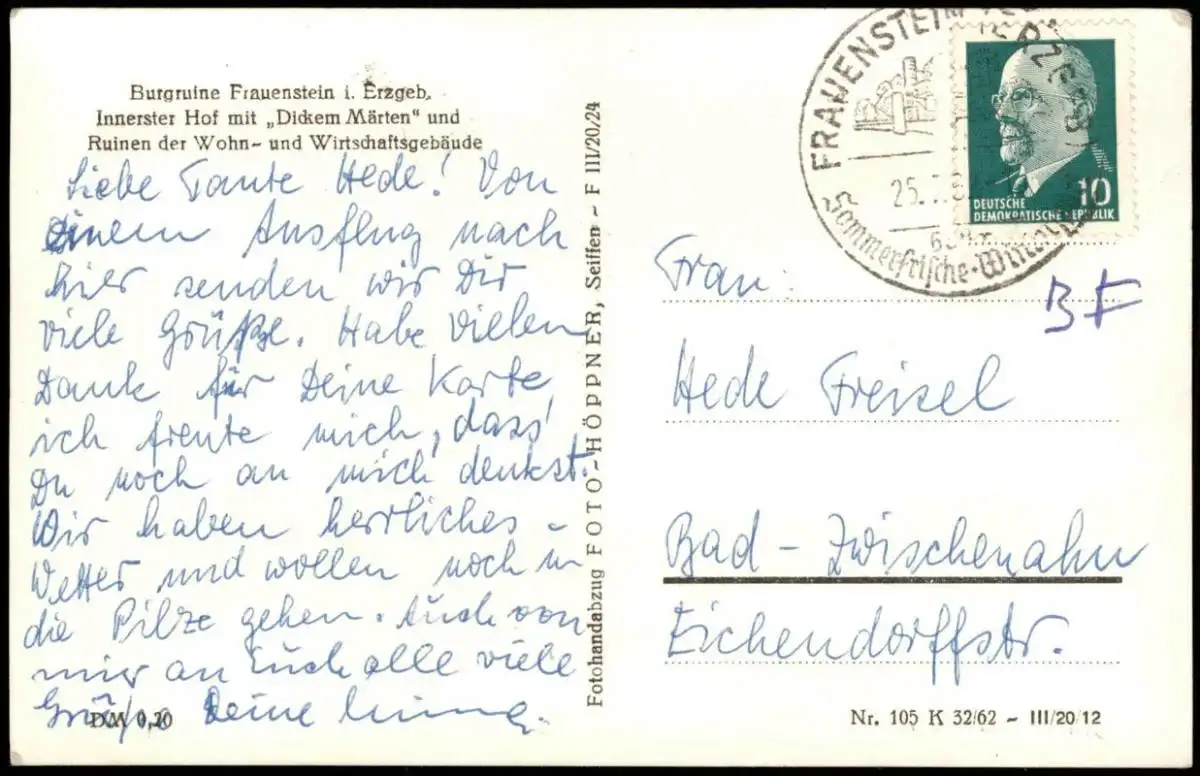 Burgruine Frauenstein i. Erzgeb.
Innerster Hof mit „Dickem Märten" und
Ruinen der Wohn- und Wirtschaftsgebäude
Liebe Tante Hede! Von
einem Ausflug nach
hier senden wir Dir
viele Grüße. Habe vielen
Dank für Deine Karte
ich freute mich, dass
Du noch an mich denkst.
Wir haben herrliches -
Wetter und wollen noch in
die Pilze gehen. Auch von
mir an Euch alle viele
Grüße Deine
DM 0,20
Fotohandabzug FOTO-HÖPPNER, Seiffen - F III/20/24
FRAUENSTEIN ERZGEB
25.
Sommerfrische-Winter
DEUTSCHE
DEMOKRATISCHE REPUBLIK
10
Frau:
BF
Hede Freisel
Bad-Zwischenahn
Eichendorffstr.
Nr. 105 K 32/62 - III/20/12